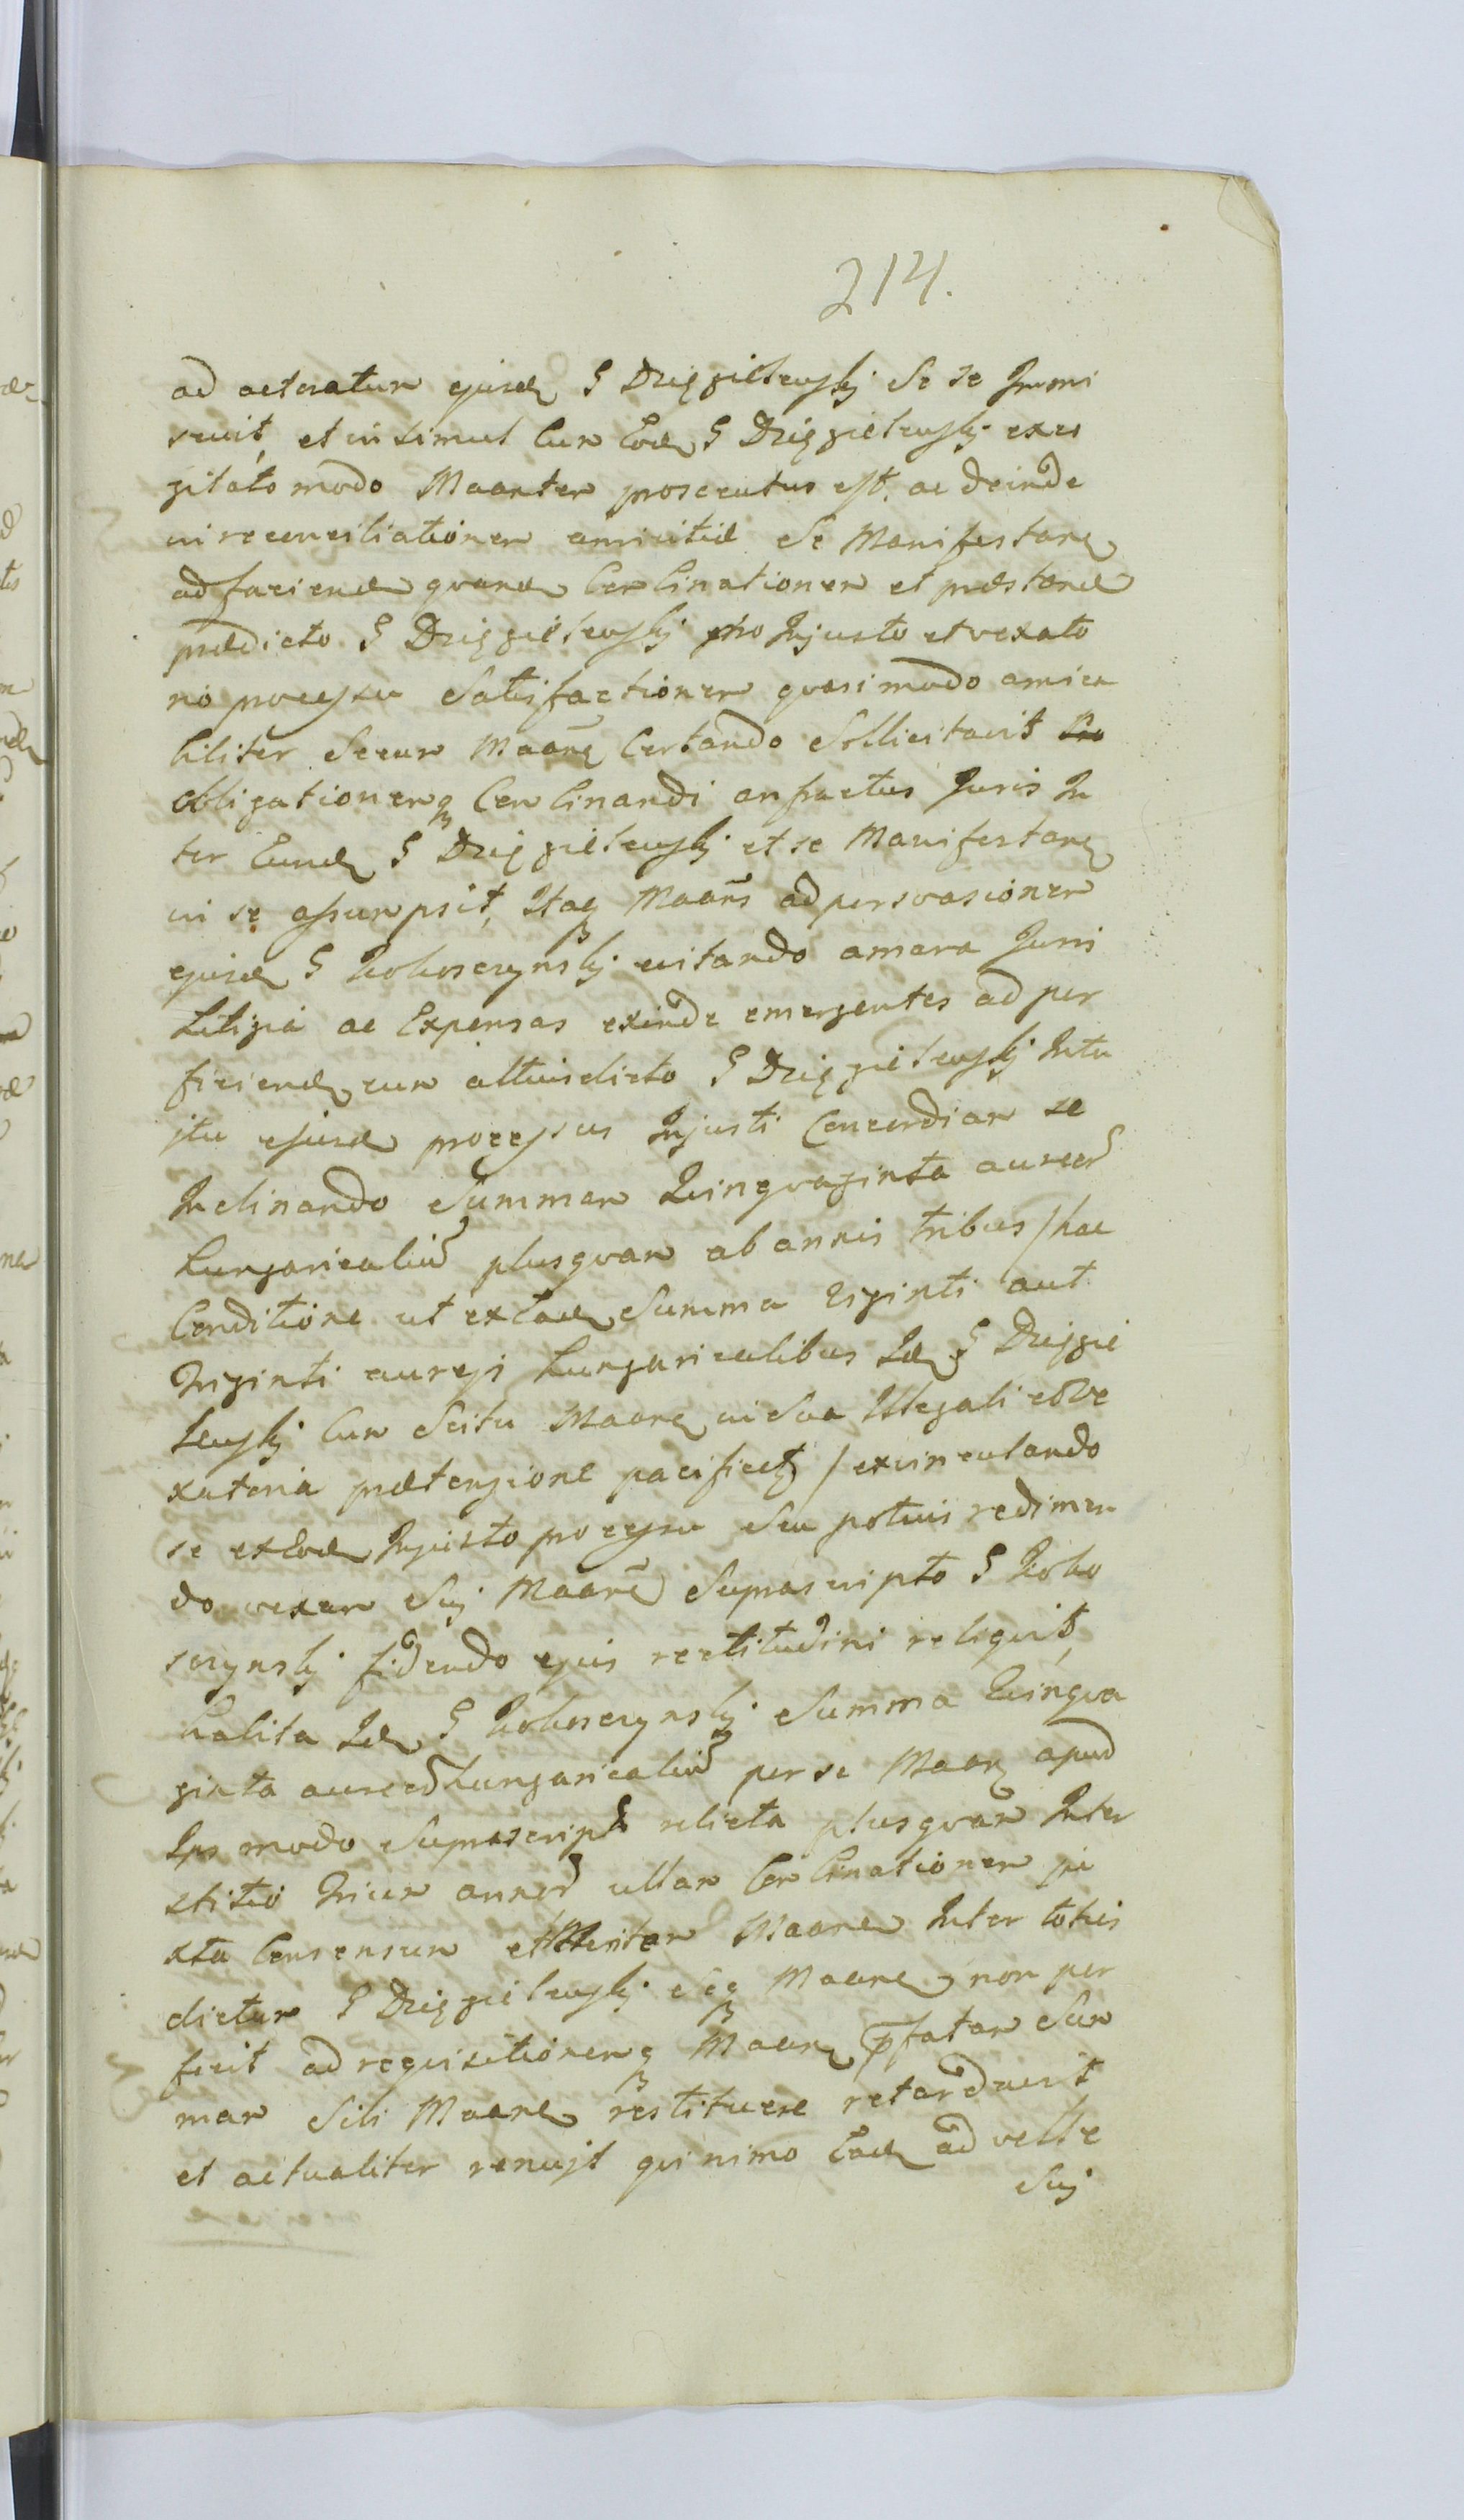 214.
ad actoratum ejusd G Dzięgielewskj Se se Immi
scuit, et in simul Cum Eod G Dzięgielewskj exco
gitato modo Maantem prosecutus est, ac deinde
in reconciliationem amicitiæ Se Manifestan
ad faciend quand Combinationem et præstand
prædicto G Dzięgielewskj pro Injusto et vexato
rio processu Satisfactionem quasi modo amica
biliter Secum Maane Certando Sollicitavit
obligationemq Combinandi anfractus Juris In
ter Eund G Dzięgielewskj et se Manifestan
in se assumpsit, Itaq Maans ad persvasionem
ejusd G Kokoszynskj evitando amara Juris
Litigia ac Expensas exinde emergentes ad per
ficiend cum altius dicto G Dzięgielewskj Intu
itu ejusd processus Injusti Concordiam se
Inclinando Summam Quinqvaginta aureor
Hungaricaliu plusqvam ab annis tribus / hac
Conditione ut ex Ead Summa Viginti aut
Triginti aureis Hungaricalibus Id G Dzięgie
lewskj Cum Scitu Maane in Sua Illegali et Ve
xatoria prætensione pacificet / exvinculando
se ex Eod Injusto processu Seu potius redimen
do vexam Suj Maans Suprascripto G Koko
szynskj fidendo ejus rectitudini reliquit,
habita Id G Kokoszynskj Summa Quinqva
ginta aureor Hungaricaliu per se Maan apud
Ips modo Suprascript relicta plusqvam Inter
stitio Trium annor ullam Combinationem ju
xta Consensum et Maane Inter toties
dictum G Dzięgielewskj Seq Maane non per
fecit ad requisitionemq Maan pfatam Sum
mam Sibi Maane restituere retardavit
et actualiter renuit qvinimo Ead ad velle
Suj